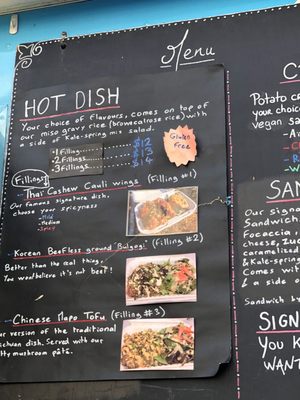 Menu
HOT DISH
Your choice of flavours, comes on top of
our miso gravy rice (brown&calrose rice) with
a side of Kale-spring mix salad.
1 Filling $12
2 Fillings $13
3 Fillings $14
Gluten
Free
Fillings
Thai Cashew Cauli wings (Filling #1)
Our famous signature dish,
choose your spicyness
-Mild
-Medium
-Spicy
Korean Beefless ground "Bulgogi" (Filling #2)
Better than the real thing,
You won't believe it's not beef!
Chinese Mapo Tofu (Filling #3)
our version of the traditional
dish. Served with our
mushroom pâté.
Potato
your choice
vegan
SAN
Our signa
Sandwich
Focaccia,
cheese,
carameli
& Kale-spring
Comes with
& a side o
Sandwich
SIGN
You K
WANT